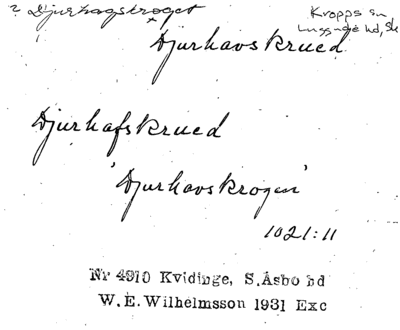 ? Djurhagskroget
Kropps sn
Luggude hd, Sk
Djurhavskrued
Djurhafskrued
'Djurhavskrogen'
1021:11
Nr 4910 Kvidinge, S.Åsbo hd
W.E.Wilhelmsson 1931 Exc